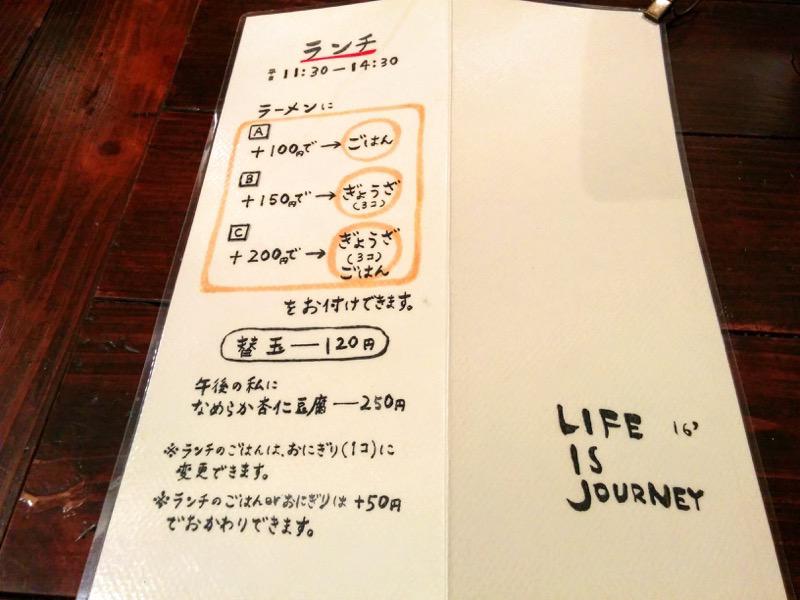 ランチ
平日 11:30ー14:30
ラーメンに
A
+100円で→ごはん
B
+150円で→ぎょうざ
(3コ)
C
+200円で→ぎょうざ
(3コ)
ごはん
をお付けできます。
替玉ー120円
午後の私に
なめらか杏仁豆腐ー250円
※ランチのごはんは、おにぎり(1コ)に
変更できます。
※ランチのごはんorおにぎりは+50円
でおかわりできます。
LIFE 16'
IS
JOURNEY